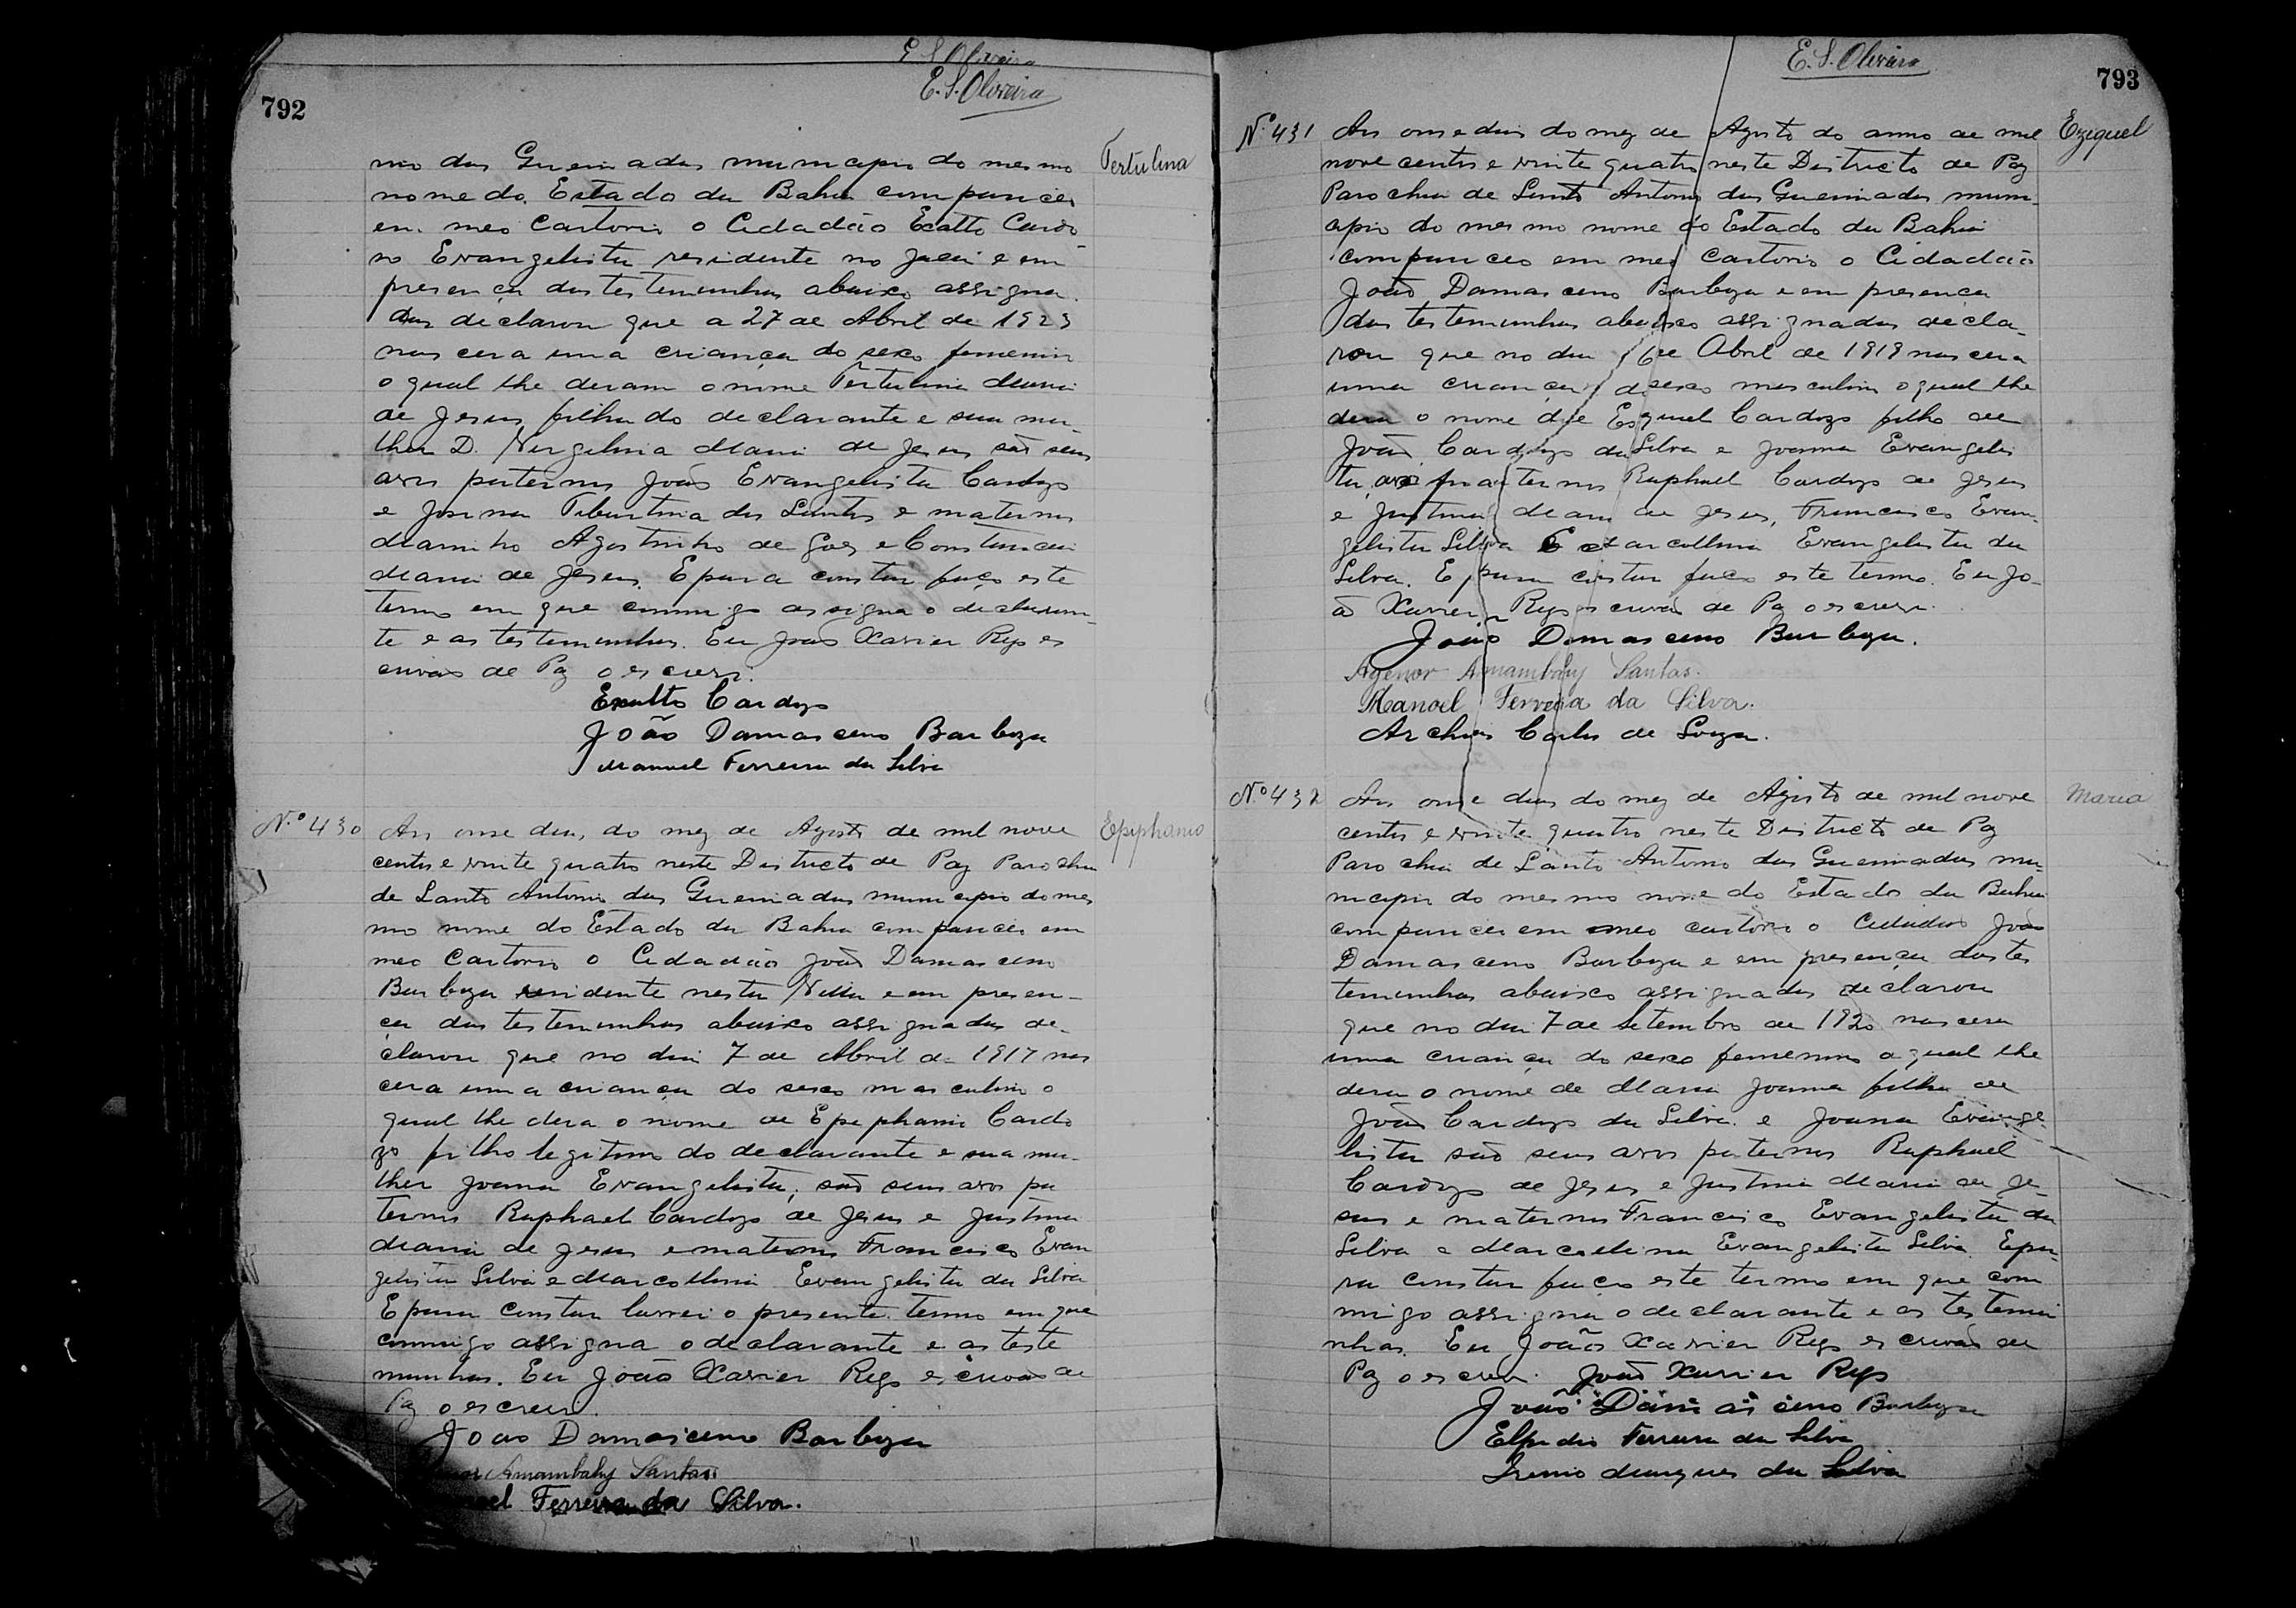 E S Oliveira
E. S. Oliveira
792
Tertulina
mo das Queimadas municipio do mesmo
nome do Estado da Bahia compareceo
em meo Cartorio o Cidadão Exalto Cardo
so Evangelista residente no Jacú e em
presença das testemunhas abaixo assigna
das declarou que a 27 de Abril de 1923
nascera uma criança do sexo feminin
o qual lhe deram o nome Tertulina Maria
de Jesus filha do declarante e sua mu-
lher D. Virgelina Maria de Jesus são seus
avos paternos João Evangelista Cardozo
e Josina Tiburtina dos Santos e maternos
Marinho Agostinho de Goes e Constancia
Maria de Jesus. E para constar faço este
termo em que commigo assigna o declaran-
te e as testemunhas. Eu João Xavier Rego es
crivão de Paz o escrevi.
Exalto Cardozo
João Damasceno Barboza
Manuel Ferreira da Silva
N.º 430
Epiphanio
Aos onse dias, do mez de Agosto de mil nove
centos e vinte quatro neste Districto de Paz Parochia
de Santo Antonio das Queimadas municipio do mes
mo nome do Estado da Bahia compareceo em
meo Cartorio o Cidadão João Damasceno
Barboza residente nesta Villa e em presen-
ça das testemunhas abaixo assignadas de-
clarou que no dia 7 de Abril de 1917 nas
cera uma criança do sexo masculino o
qual lhe dera o nome de Epephanio Cardo
zo filho legitimo do declarante e sua mu-
lher Joanna Evangelista, são seus avos pa
ternos Raphael Cardozo de Jesus e Justina
Maria de Jesus e maternos Francisco Evan
gelista Silva e Marcollina Evangelista da Silva
E para constar lavrei o presente termo em que
commigo assigna o declarante e as teste
munhas. Eu João Xavier Rego escrivão de
Paz o escrevi.
João Damasceno Barboza
Amambahy Santos
Ferreira da Silva.
E. S. Oliveira
793
N.º 431
Eziquel
Aos onse dias do mez de Agosto do anno de mil
nove centos e vinte quatro neste Districto de Paz
Parochia de Santo Antonio das Queimadas muni-
cipio do mesmo nome do Estado da Bahia
compareceo em meo Cartorio o Cidadão
João Damasceno Barboza e em presença
das testemunhas abaixo assignadas decla-
rou que no dia 6 de Abril de 1919 nascera
uma criança do sexo masculino o qual lhe
dera o nome de Esquel Cardozo filho de
João Cardozo da Silva e Joanna Evangelis
ta, avos paternos Raphael Cardozo de Jesus
e Justina Maria de Jesus, Francisco Evan-
gelista Silva e Marcollina Evangelista da
Silva. E para constar faço este termo. Eu Jo-
ão Xavier Rego escrivão de Paz o escrevi.
João Damasceno Barboza.
Agenor Amambahy Santos.
Manoel Ferreira da Silva.
Archias Carlos de Souza.
N.º 432
Maria
Aos onse dias do mez de Agosto de mil nove
centos e vinte quatro neste Districto de Paz
Parochia de Santo Antonio das Queimadas mu-
nicipio do mesmo nome do Estado da Bahia
compareceo em meo cartorio o Cidadão João
Damasceno Barboza e em presença das tes
temunhas abaixo assignadas declarou
que no dia 7 de Setembro de 1920 nascera
uma criança do sexo femenino a qual lhe
dera o nome de Maria Joanna filha de
João Cardozo da Silva e Joanna Evange-
lista são seus avos paternos Raphael
Cardozo de Jesus e Justina Maria de Je-
sus e maternos Francisco Evangelista da
Silva e Marcollina Evangelista Silva. E pa-
ra constar faço este termo em que com
migo assigna o declarante e as testemu
nhas. Eu João Xavier Rego escrivão de
Paz o escrevi. João Xavier Rego
João Damasceno Barboza
Elpidio Ferreira da Silva
Irenio Marques da Silva